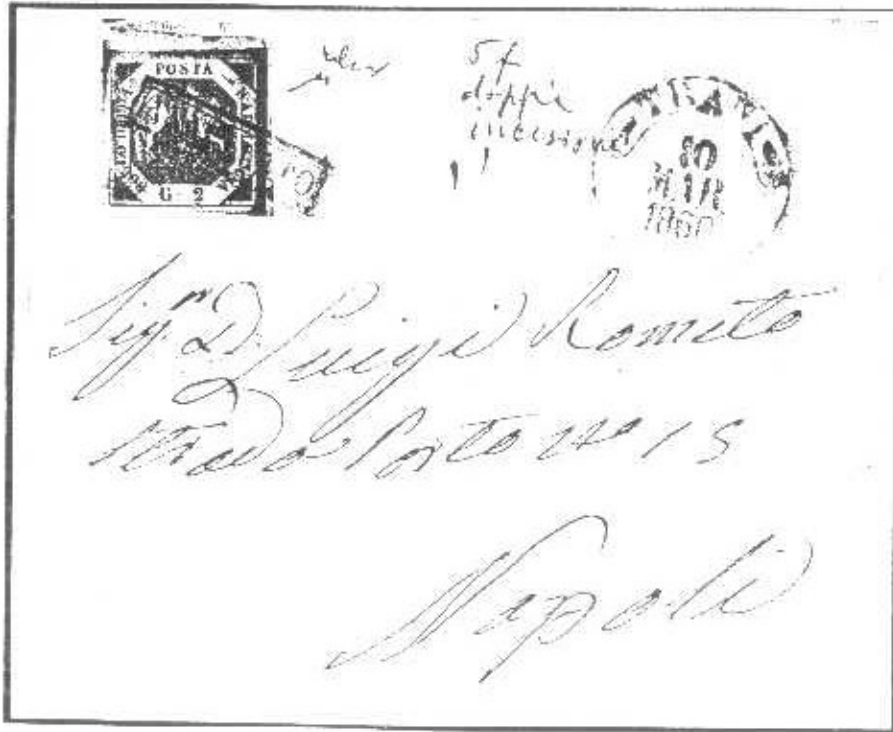 POSTA
G 2
5 f
doppia
incisione
TRANI
10
MAR
1860
Sig.r D. Luigi Romito
Strada Porto No 15
Napoli